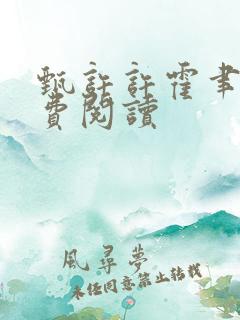 甄許許霍聿
費閱讀
風尋夢
未經同意禁止转载